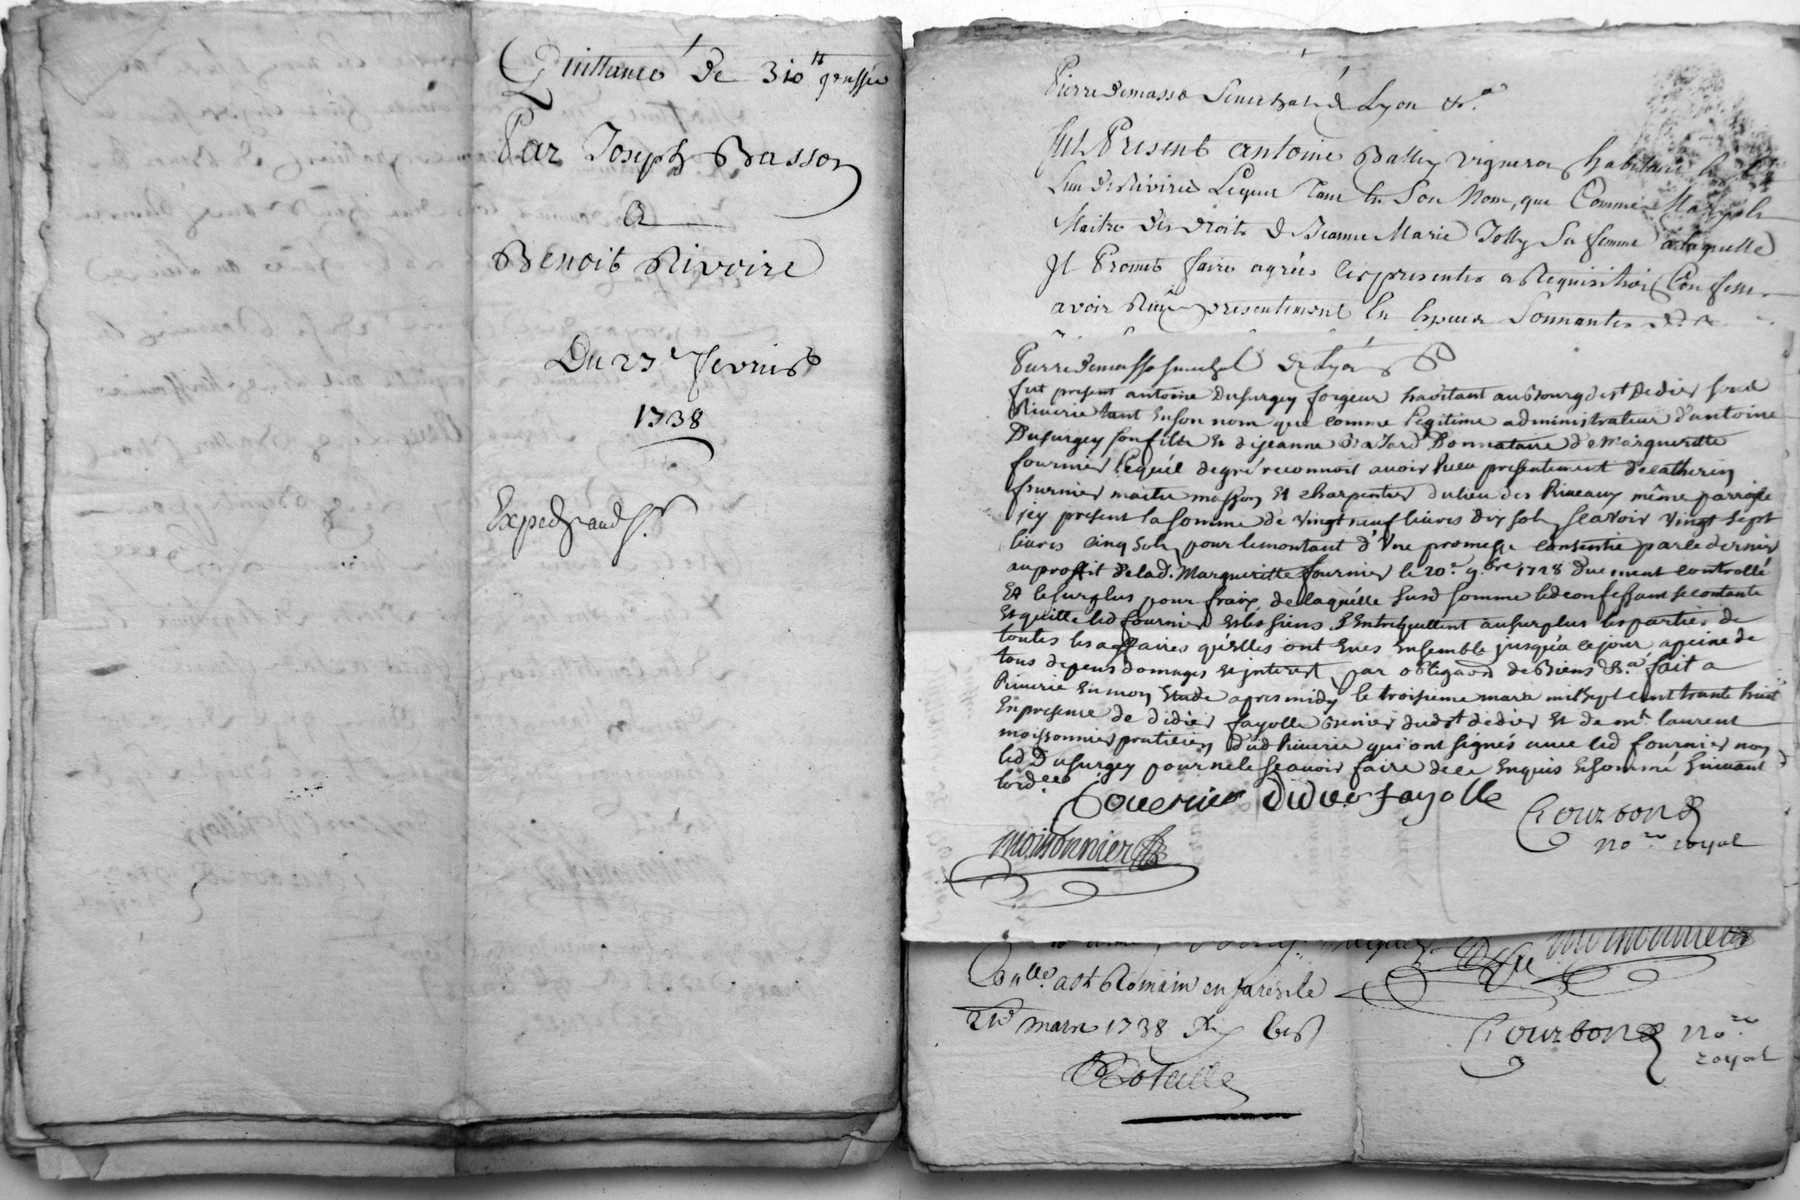 Quittance de 310tt grossée
Par Joseph Basson
A
Benoit Rivoire
Du 23e fevrier
1738
Exped
Pierre Demasso Senechal de Lyon &.a
fut Present antoine Balley vigneron habitant
lieu de Riviries Lequel Tant En Son Nom, que Comme
Maitre des droits de Jeanne Marie Jolly Sa femme a laquelle
Il Promet faire agreés les presentes a Requisition Confesse
avoir Reçu presentement En Especes Sonnantes
Pierre demasso senechal de Lyon &
fut present antoine Dusurgey forgeur habitant au Bourg de st Didier sous
Riverie tant en son nom que comme legitime administrateur d'antoine
Dusurgey son fils & de jeanne Donnataire de Margueritte
fournier lequel de gré reconnoit avoir Receu presentement de catherin
fournier maitre masson Et charpentier du lieu des Riveaux même parroisse
icy present la somme de vingt neuf livres dix sols scavoir vingt sept
livres cinq sols pour le montant d'Une promesse consentie par le dernier
au proffit de lad. Marguerite fournier le 20.e 9bre 1728 duement controllé
Et le surplus pour fraix, de laquelle susd somme led confessant se contente
Et quitte led fournier et les siens S'Entrequittent au surplus les parties de
toutes les affaires qu'elles ont Eues Ensemble jusqu'a ce jour a peine de
tous depens domages et interest par obligaon de Biens &.a fait a
Riverie En mon Etude apres midy le troisieme mars mil sept cent trente huit
En presence de didier fayolle Grenier dud st didier Et de mr. laurent
moissonnier praticien dud Riverie qui ont signés avec led fournier non
led Dusurgey pour ne le scavoir faire de ce Enquis Et sommé suivant
lord.ce
fournier Didier fayolle
Gourbond
no.re royal
moissonnier
moissonnier
Con.lle a st Romain en jarest le
mars 1738
Gourbond no.re
royal